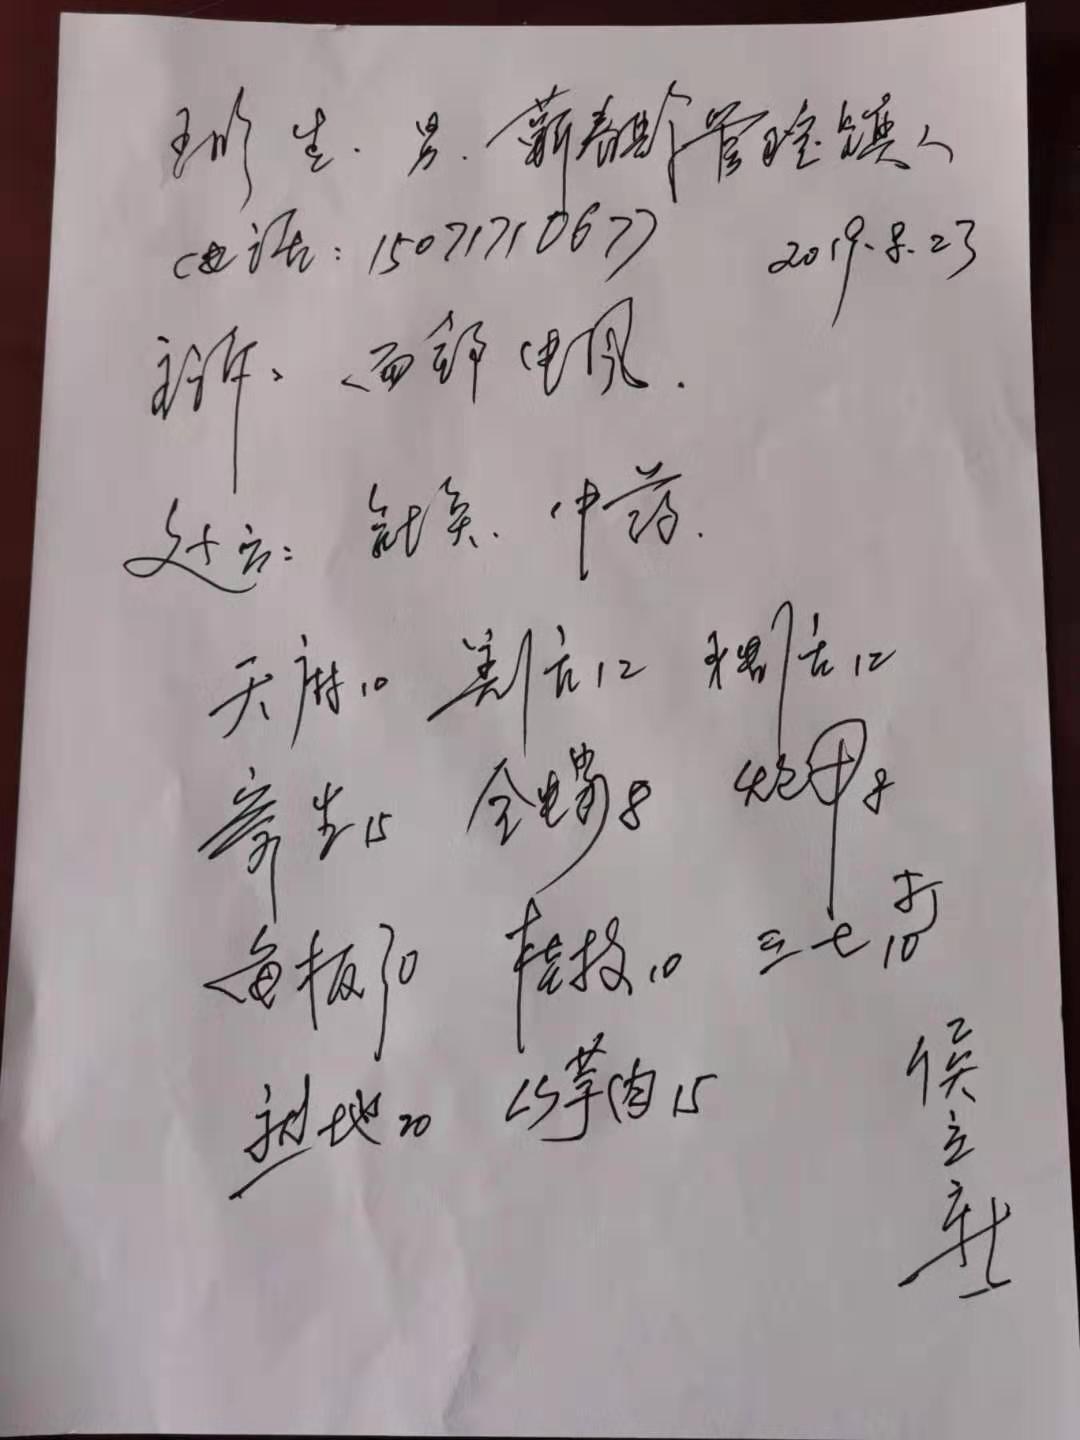 生.男.蕲春县管窑镇人
电话:15071710677 2019.8.23
主诉:面部中风.
处方:针灸.中药.
天麻10 羌活12 独活12
寄生15 全蝎8 炮甲8
龟板30 桂枝10 三七10打
熟地20 山萸肉15
侯
立